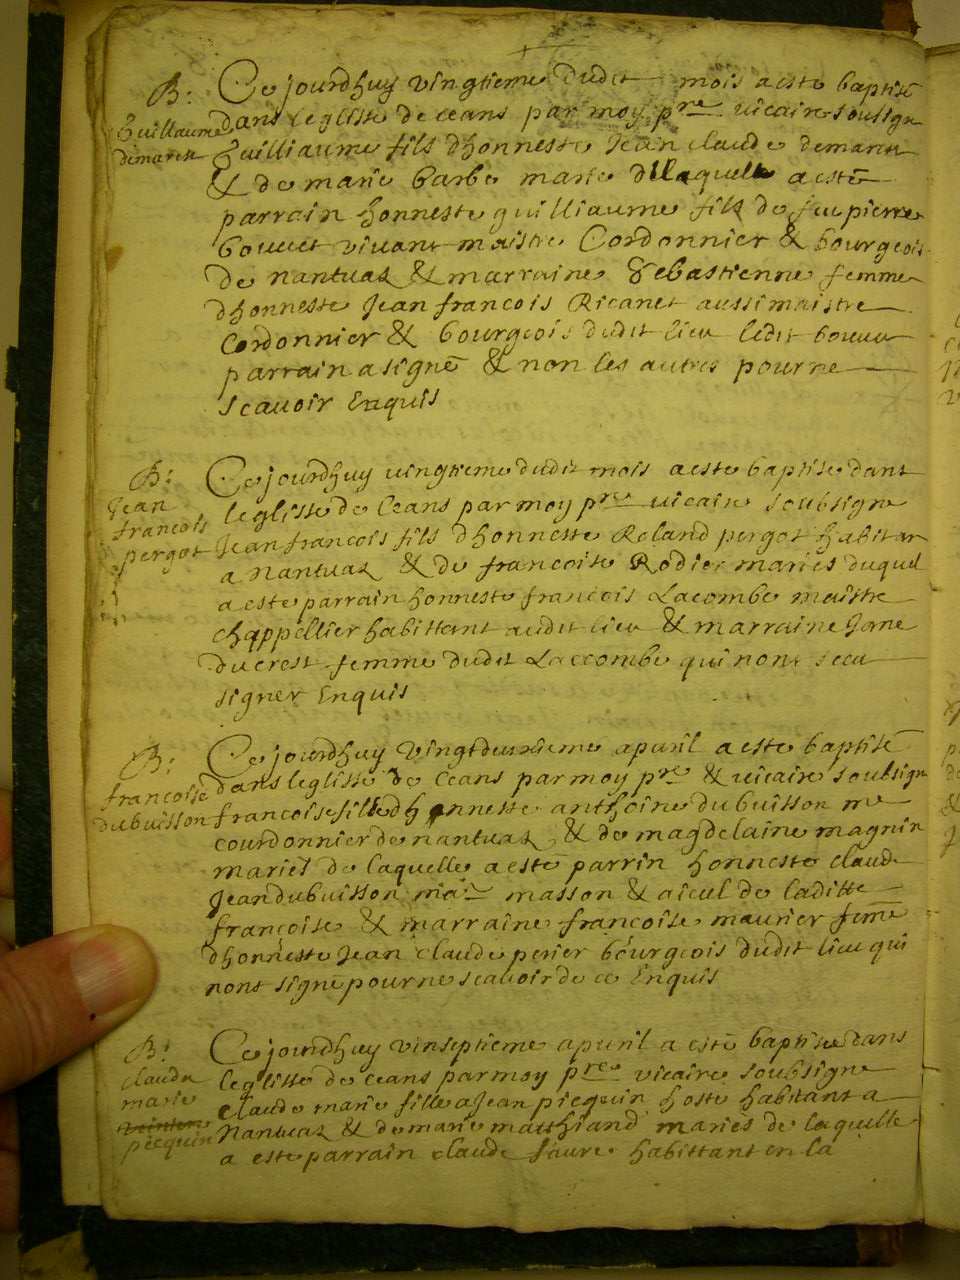 B:
Guilliaume
demarest
Ce jourdhuy vingtieme dudit mois a este baptisé
dans leglisse de ceans par moy pre vicaire soubsigne
Guilliaume fils dhonneste Jean claude demarest
& de marie barbe maries dllaquelle a esté
parrain honneste guilliaume fils de feu pierre
bouuet viuant maistre Cordonnier & bourgeois
de nantuaz & marraine Sebastienne femme
dhonneste Jean francois Ricanet aussi maistre
Cordonnier & bourgeois dudit lieu ledit bouuet
parrain a signé & non les autres pour ne
scauoir Enquis
B:
Jean
francois
pergot
Ce jourdhuy vingtieme dudit mois a este baptise dans
leglisse de Ceans par moy pre vicaire soubsigne
Jean francois fils dhonneste Roland pergot habitan
a Nantuaz & de francoise Rodier maries duquel
a este parrain honneste francois Lacombe maistre
chappellier habittant audit lieu & marraine Jane
ducrest femme dudit Laccombe qui nont sceu
signer Enquis
B:
francoise
dubuisson
Ce jourdhuy vingtdeuxieme apuril a este baptisé
dans leglisse de Ceans par moy pre & vicaire soubsigne
francoise fille dhonneste anthoine dubuisson me
courdonnier de nantuaz & de magdelaine magnin
mariés de laquelle a esté parrin honneste claude
Jean dubuisson masson & aieul de laditte
francoise & marraine francoise maurier feme
dhonneste Jean Claude perier bourgeois dudit lieu qui
nont signe pour ne scauoir de ce Enquis
B:
claude
marie
picquin
Ce jourdhuy vinseptieme apuril a esté baptisée dans
leglisse de ceans par moy pre vicaire soubsigne
Claude marie fille a Jean picquin hoste habitant a
Nantuaz & de marie matthiand mariés de laquelle
a este parrain claude faure habittant en la